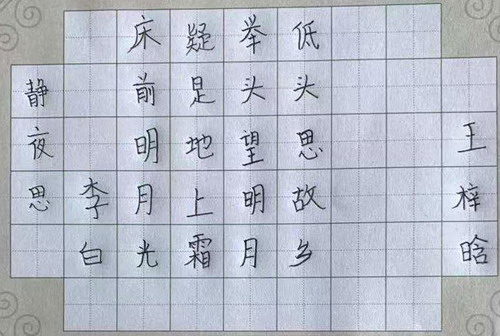 静夜思
李白
床前明月光
疑是地上霜
举头望明月
低头思故乡
王梓晗